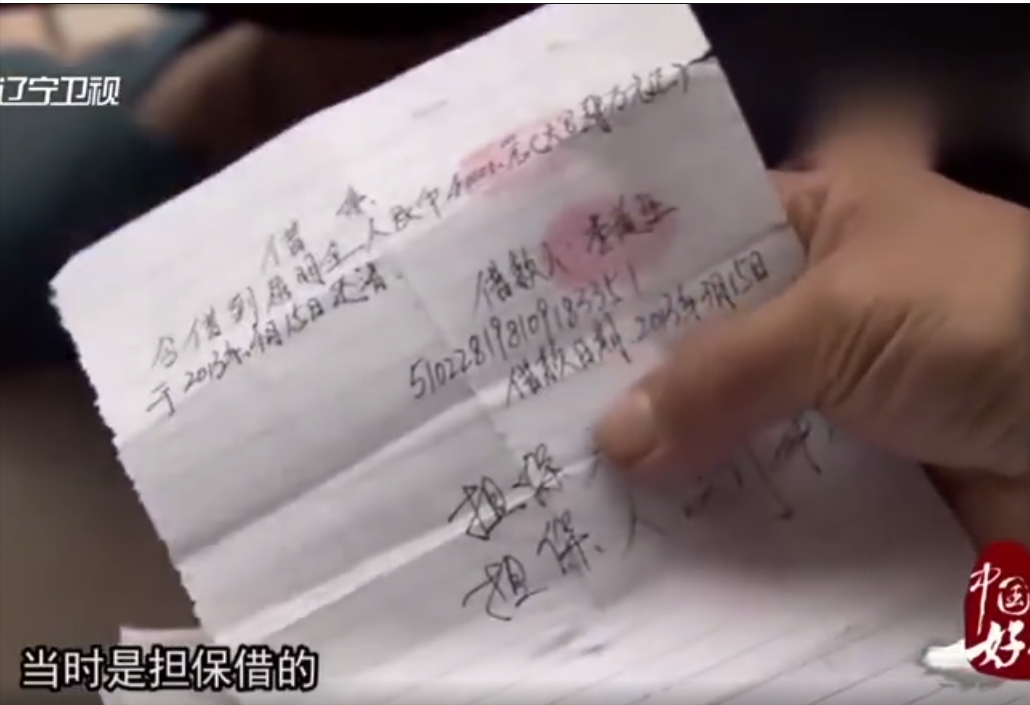 辽宁卫视
借条
今借到 明全人民币 元(大写 万元正)
于2013年 月15日还清.
借款人:李
510228198109183351
借款日期.2013年 月15日
担保
担保人
中国
好
当时是担保借的